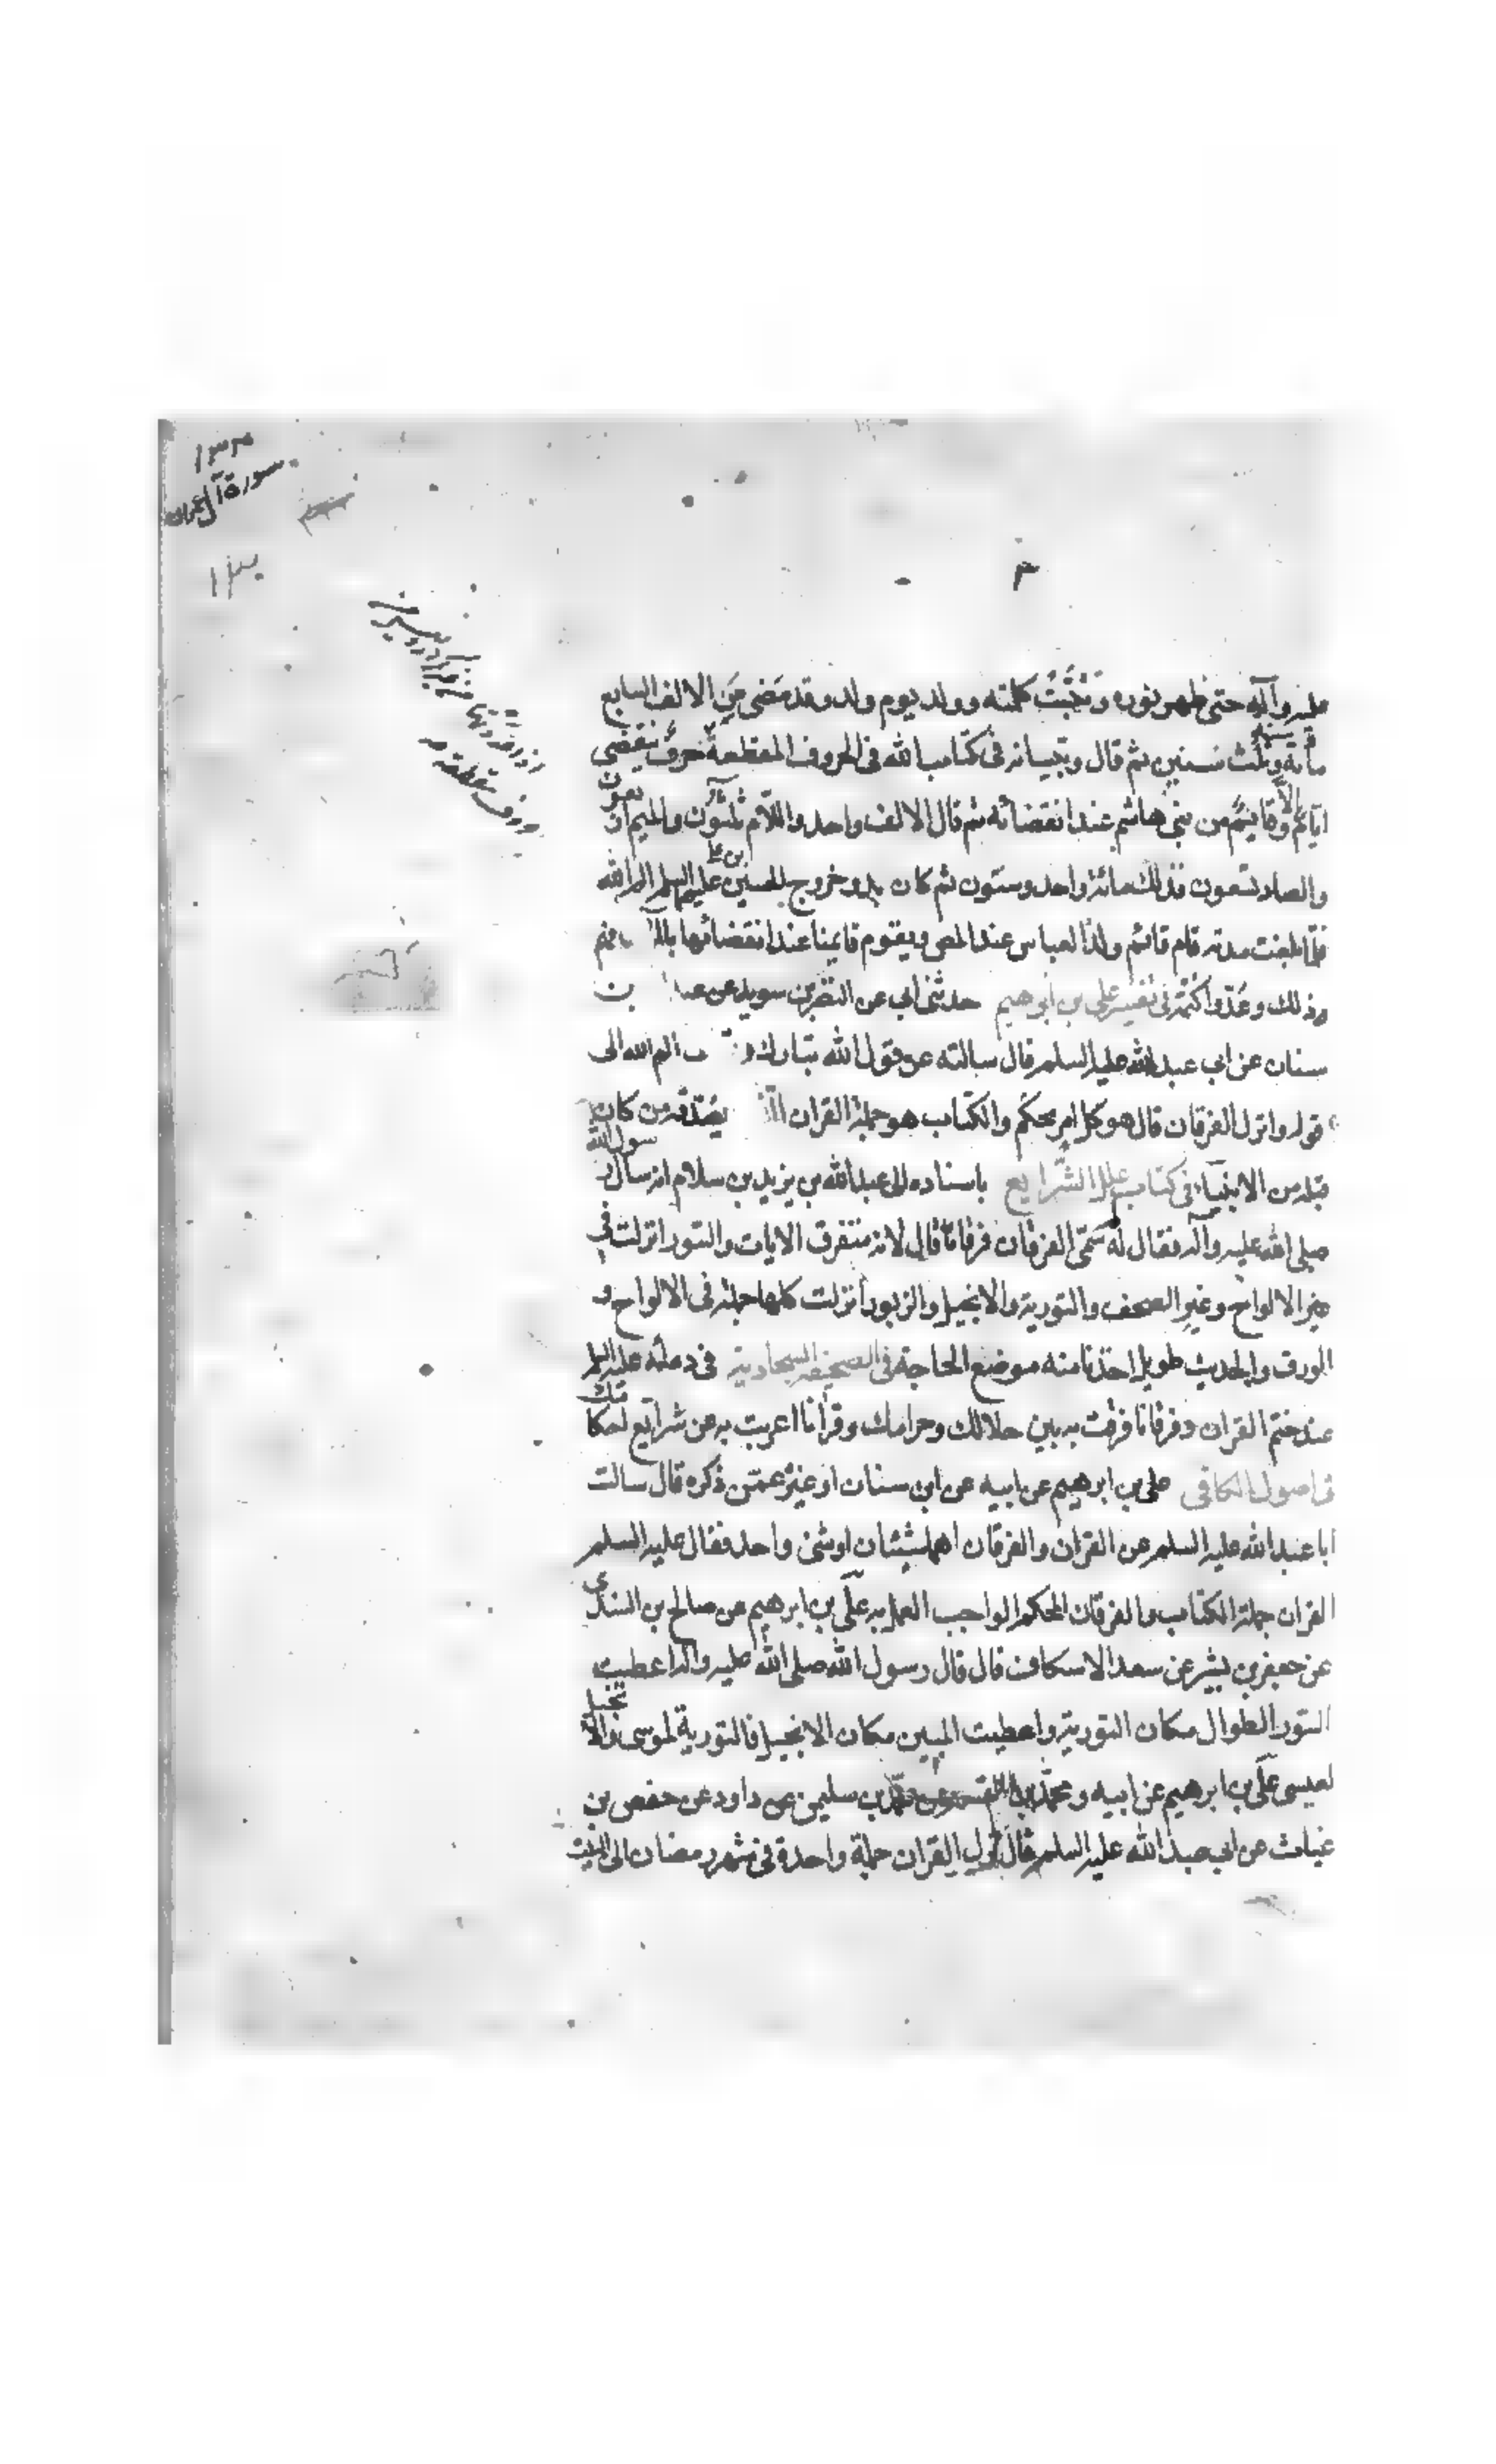 ١٣٢
سورة آل عمران
عليه وآله حتى ظهر نوره وثبتت كلمته وولد يوم ولد وقد مضى من الالف السابع
مائة وثلث سنين ثم قال وتبيانه في كتاب الله في الحروف المقطعة حرف ينقضي
ايامه الا وقايم من بني هاشم عند انقضائه ثم قال الالف واحد واللام ثلثون والميم اربعون
والصاد تسعون فذلك مائة واحد وستون ثم كان بدو خروج الحسين بن علي عليهما السلم الم الله
فلما بلغت مدته قام قائم ولد العباس عند المص ويقوم قايمنا عند انقضائها بالر فافهم
ذلك وعدوا كتمه في تفسير علي بن ابرهيم حدثني ابي عن النضر بن سويد عن عبد بن
سنان عن ابي عبد الله عليه السلم قال سالته عن قول الله تبارك الم الله الى
قوله وانزل الفرقان قال هو كل امر محكم والكتاب هو جملة القران يصدقه من كان
قبله من الانبياء في كتاب علل الشرايع باسناده الى عبد الله بن يزيد بن سلام انه سال رسول الله
صلى الله عليه وآله فقال له سمي الفرقان فرقانا قال لانه متفرق الايات والسور انزلت في
غير الالواح وغير الصحف والتورية والانجيل والزبور أنزلت كلها جملة في الالواح و
الورق والحديث طويل اخذنا منه موضع الحاجة في الصحيفة السجادية في دعائه عليه السلم
عند ختم القران وفرقانا فرقت به بين حلالك وحرامك وقرآنا اعربت به عن شرايع احكامك
في اصول الكافي علي بن ابرهيم عن ابيه عن ابن سنان او غيره عمن ذكره قال سالت
ابا عبد الله عليه السلم عن القران والفرقان اهما شيئان او شئ واحد فقال عليه السلم
القران جملة الكتاب والفرقان المحكم الواجب العمل به علي بن ابرهيم عن صالح بن السندي
عن جعفر بن بشير عن سعد الاسكاف قال قال رسول الله صلى الله عليه واله اعطيت
السور الطوال مكان التورية واعطيت المبين مكان الانجيل فالتورية لموسى والانجيل
لعيسى علي بن ابرهيم عن ابيه ومحمد بن القسم عن محمد بن سليمن عن داود عن حفص بن
غياث عن ابي عبد الله عليه السلم قال نزل القران جملة واحدة في شهر رمضان الى البيت